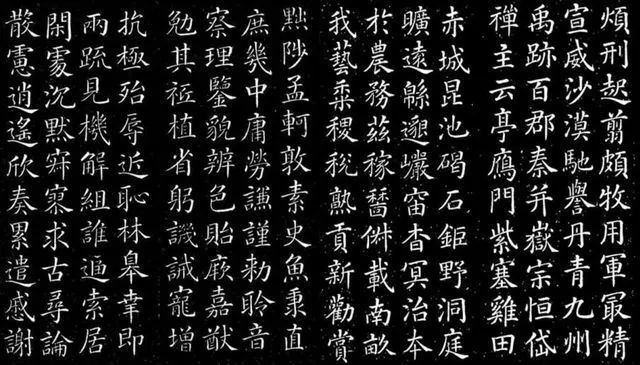 煩刑起翦頗牧用軍最精
宣威沙漠馳譽丹青九州
禹跡百郡秦并嶽宗恒岱
禪主云亭鴈門紫塞雞田
赤城昆池碣石鉅野洞庭
曠遠緜邈巖峀杳冥治本
於農務茲稼穡俶載南畝
我藝黍稷稅熟貢新勸賞
黜陟孟軻敦素史魚秉直
庶幾中庸勞謙謹勑聆音
察理鑒貌辨色貽厥嘉猷
勉其祗植省躬譏誡寵增
抗極殆辱近恥林皋幸即
兩疏見機解組誰逼索居
閑處沉默寂寥求古尋論
散慮逍遙欣奏累遣感謝